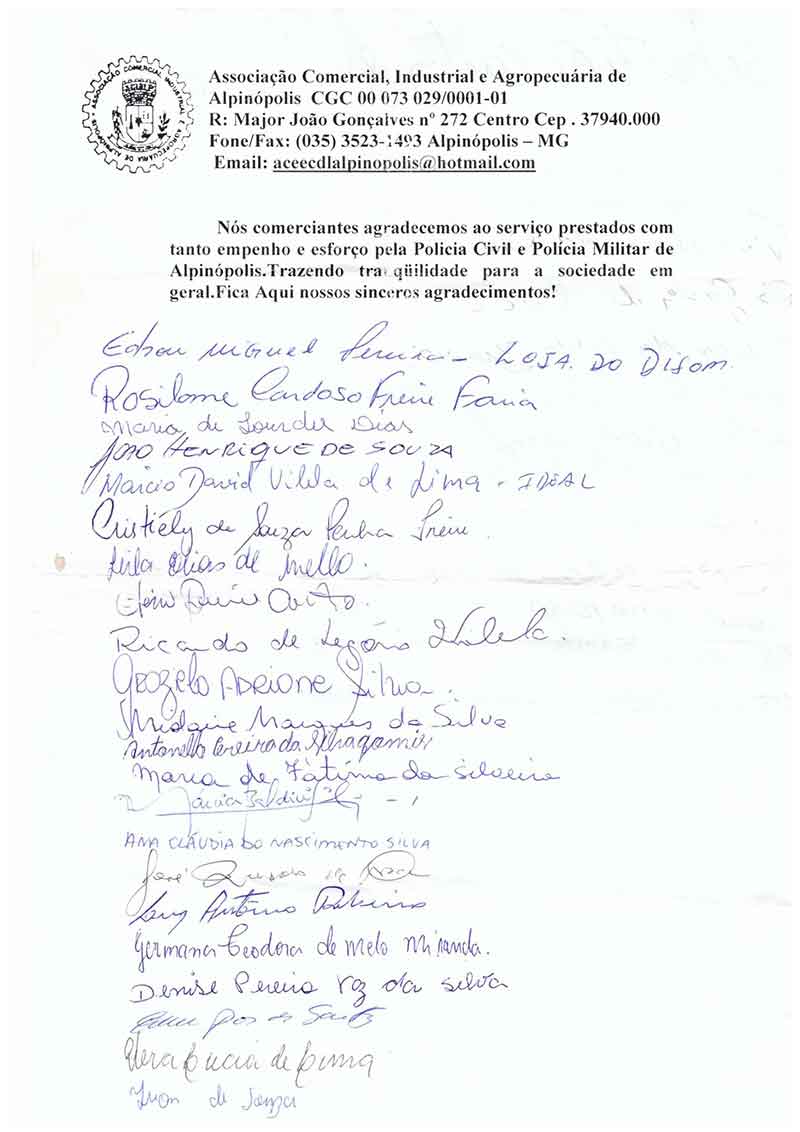 ASSOCIAÇÃO COMERCIAL INDUSTRIAL E AGROPECUÁRIA DE ALPINÓPOLIS
Associação Comercial, Industrial e Agropecuária de
Alpinópolis CGC 00 073 029/0001-01
R: Major João Gonçalves nº 272 Centro Cep . 37940.000
Fone/Fax: (035) 3523-1493 Alpinópolis – MG
Email: aceecdlalpinopolis@hotmail.com
Nós comerciantes agradecemos ao serviço prestados com
tanto empenho e esforço pela Policia Civil e Polícia Militar de
Alpinópolis.Trazendo tra qüilidade para a sociedade em
geral.Fica Aqui nossos sinceros agradecimentos!
Edson Miguel Pereira - LOJA. DO DISOM.
Rosilome Cardoso Freire Faria
Maria de Lourdes Dias
JOAO HENRIQUE DE SOUZA
Márcio David Vilela de Lima - IDEAL
Cristiély de Souza Penha Freire
Leila Elias de Mello.
Ricardo de Vilela.
ADRIONE Silva.
Marques da Silva
Antonello Pereira da
Maria de Fátima da Silveira
Márcia
ANA CLÁUDIA DO NASCIMENTO SILVA
José
Luiz Antônio
Germana Teodora de Melo Miranda.
Denise Pereira Vaz da Silva
Vera Lucia de Lima
Ivan de Souza